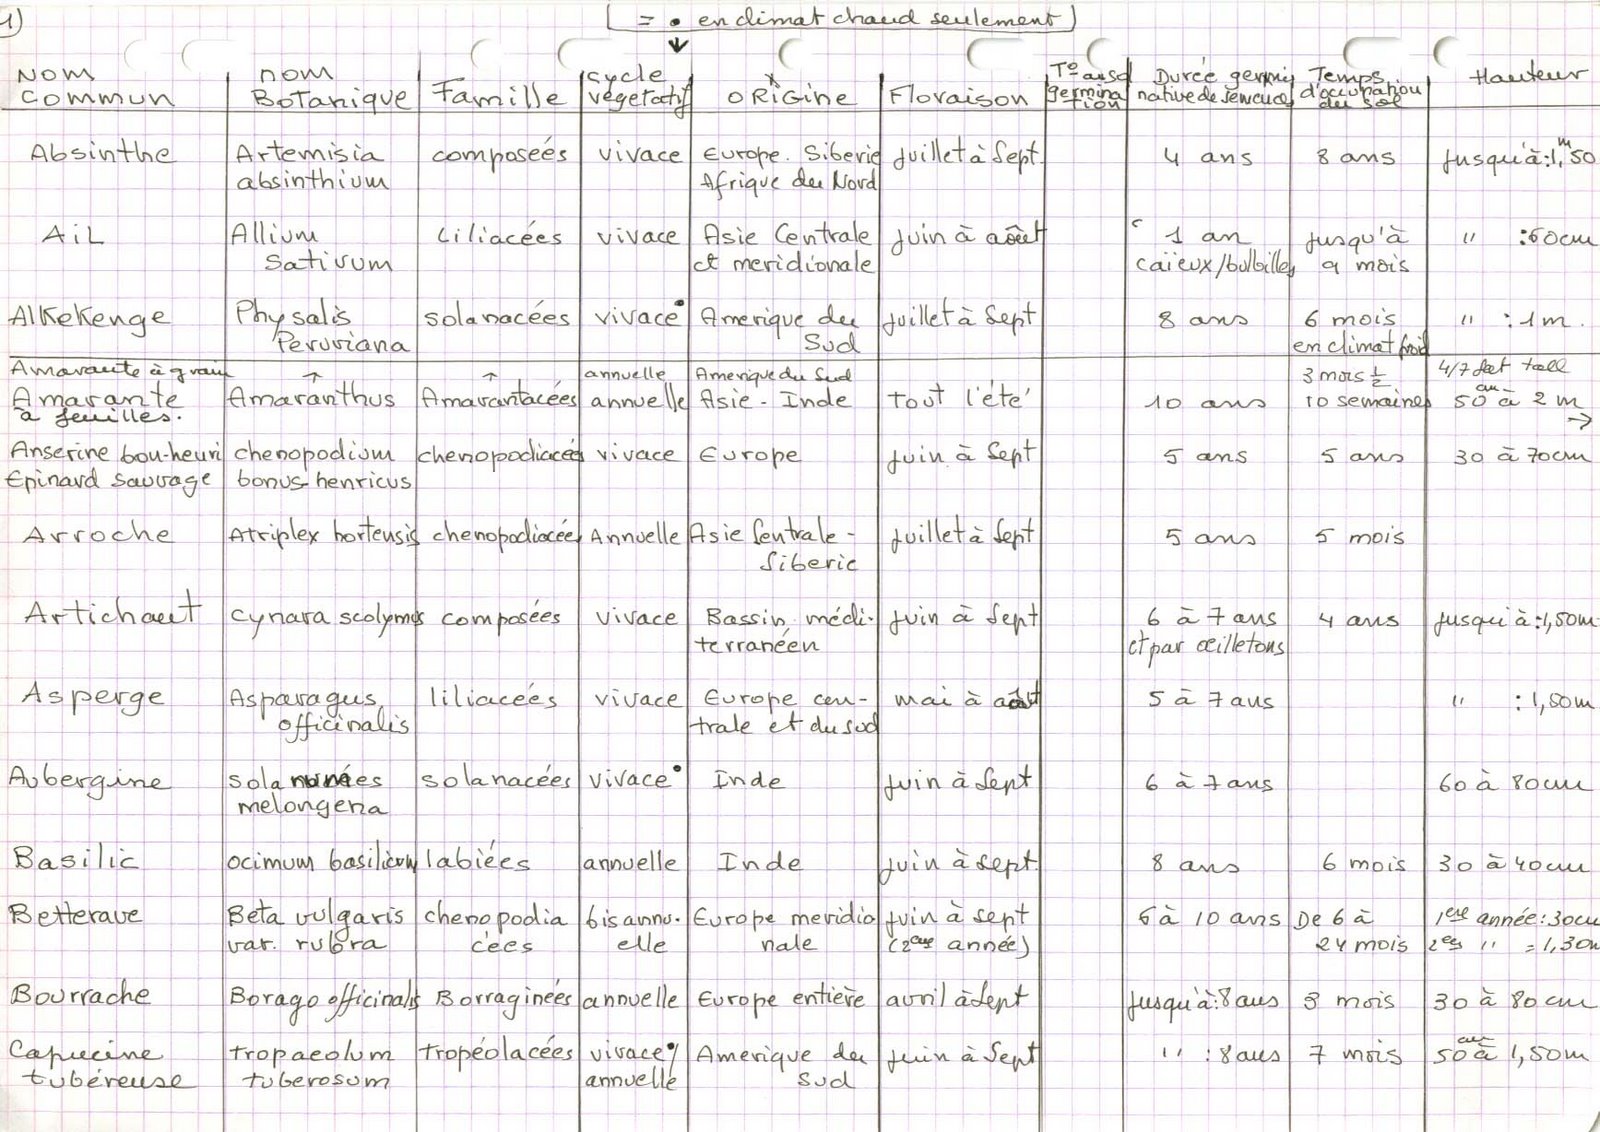 1)
( = • en climat chaud seulement )
Nom Commun | nom Botanique | Famille | cycle végétatif | ORIGINE | Floraison | T° au sol germination | Durée germinative de semences | Temps d'occupation du sol | Hauteur
Absinthe | Artemisia | composées | vivace | Europe. Siberie | Juillet à Sept. | 4 ans | 8 ans | Jusqu'à : 1,50 m
absinthium | Afrique du Nord
AiL | Allium | Liliacées | vivace | Asie Centrale | Juin à août | 1 an | Jusqu'à | " : 60cm
Sativum | et meridionale | caïeux/bulbilles | 9 mois
Alkekenge | Physalis | solanacées | vivace• | Amerique du | Juillet à Sept | 8 ans | 6 mois | " : 1m.
Peruviana | Sud | en climat froid
Amarante à grain | ↑ | ↑ | annuelle | Amerique du Sud | 3 mois ½ | 4/7 feet tall
Amarante | Amaranthus | Amarantacées | annuelle | Asie - Inde | Tout l'été | 10 ans | 10 semaines | 50 cm à 2 m
à feuilles. | →
Anserine bon-henri | chenopodium | chenopodiacées | vivace | Europe | Juin à Sept | 5 ans | 5 ans | 30 à 70cm
Epinard Sauvage | bonus-henricus
Arroche | Atriplex hortensis | chenopodiacées | Annuelle | Asie Centrale - | Juillet à Sept | 5 ans | 5 mois
Siberie
Artichaut | Cynara scolymus | composées | vivace | Bassin médi- | Juin à Sept | 6 à 7 ans | 4 ans | Jusqu'à : 1,50m
terranéen | et par œilletons
Asperge | Asparagus | liliacées | vivace | Europe cen- | mai à août | 5 à 7 ans | " : 1,50m
officinalis | trale et du sud
Aubergine | solanacées | vivace• | Inde | Juin à Sept | 6 à 7 ans | 60 à 80cm
melongena
Basilic | ocimum basilicum | labiées | annuelle | Inde | Juin à Sept. | 8 ans | 6 mois | 30 à 40cm
Betterave | Beta vulgaris | chenopodia | bisannu- | Europe meridio | Juin à sept | 6 à 10 ans | De 6 à | 1ere année : 30cm
var. rubra | cées | elle | nale | (2eme année) | 24 mois | 2es " = 1,30m
Bourrache | Borago officinalis | Borraginées | annuelle | Europe entière | avril à Sept | Jusqu'à : 8 ans | 3 mois | 30 à 80 cm
Capucine | tropaeolum | tropéolacées | vivace•/ | Amerique du | Juin à Sept | " : 8 ans | 7 mois | 50 cm à 1,50m
tubéreuse | tuberosum | annuelle | Sud